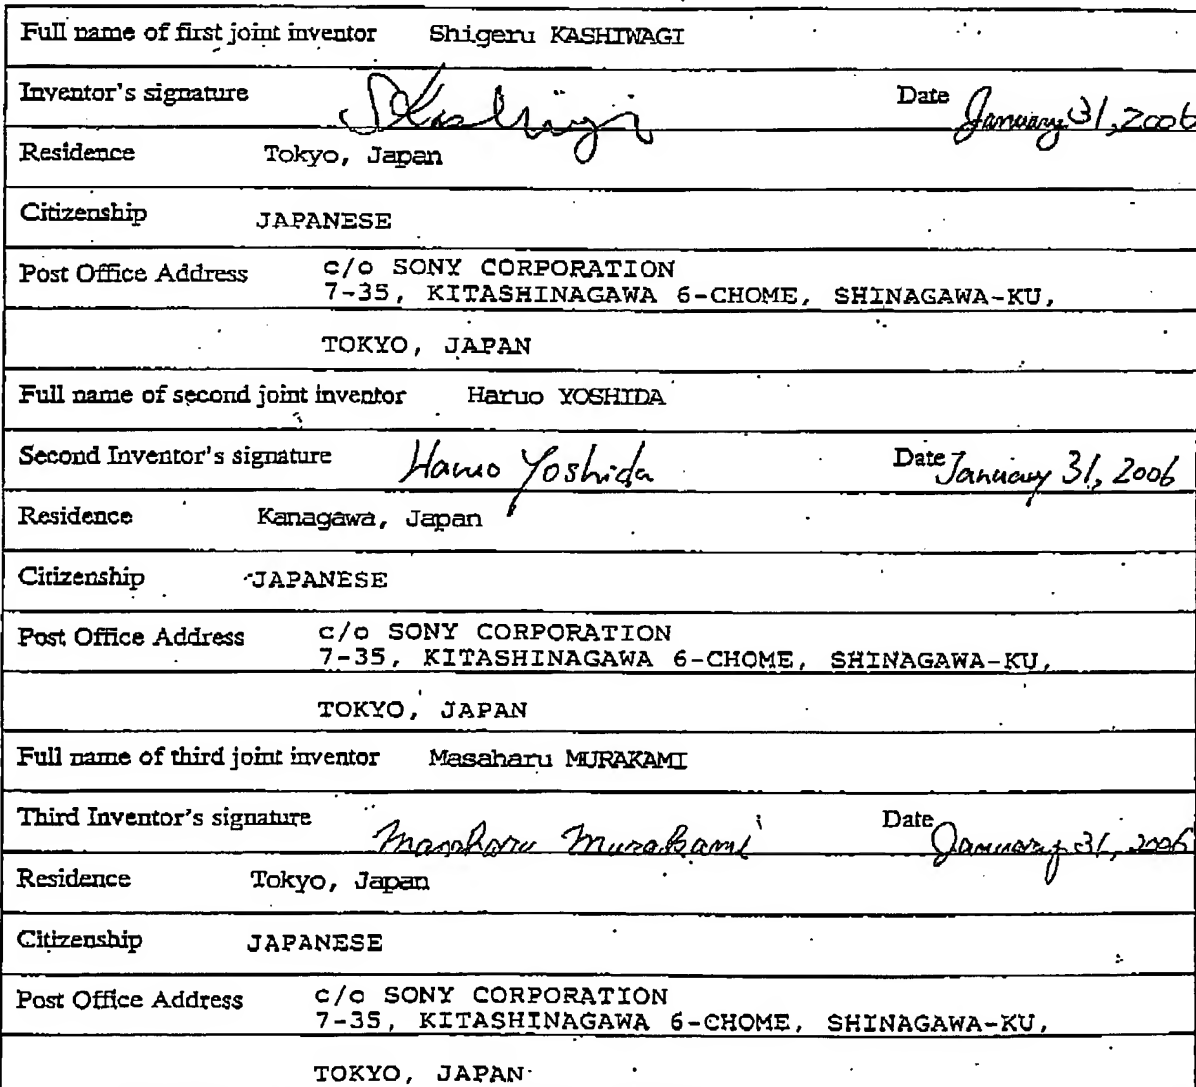 Full name of first joint inventor Shigeru KASHIWAGI
Inventor's signature S Kashiwagi Date January 31, 2006
Residence Tokyo, Japan
Citizenship JAPANESE
Post Office Address c/o SONY CORPORATION
7-35, KITASHINAGAWA 6-CHOME, SHINAGAWA-KU,
TOKYO, JAPAN
Full name of second joint inventor Haruo YOSHIDA
Second Inventor's signature Haruo Yoshida Date January 31, 2006
Residence Kanagawa, Japan
Citizenship JAPANESE
Post Office Address c/o SONY CORPORATION
7-35, KITASHINAGAWA 6-CHOME, SHINAGAWA-KU,
TOKYO, JAPAN
Full name of third joint inventor Masaharu MURAKAMI
Third Inventor's signature Masaharu Murakami Date January 31, 2006
Residence Tokyo, Japan
Citizenship JAPANESE
Post Office Address c/o SONY CORPORATION
7-35, KITASHINAGAWA 6-CHOME, SHINAGAWA-KU,
TOKYO, JAPAN